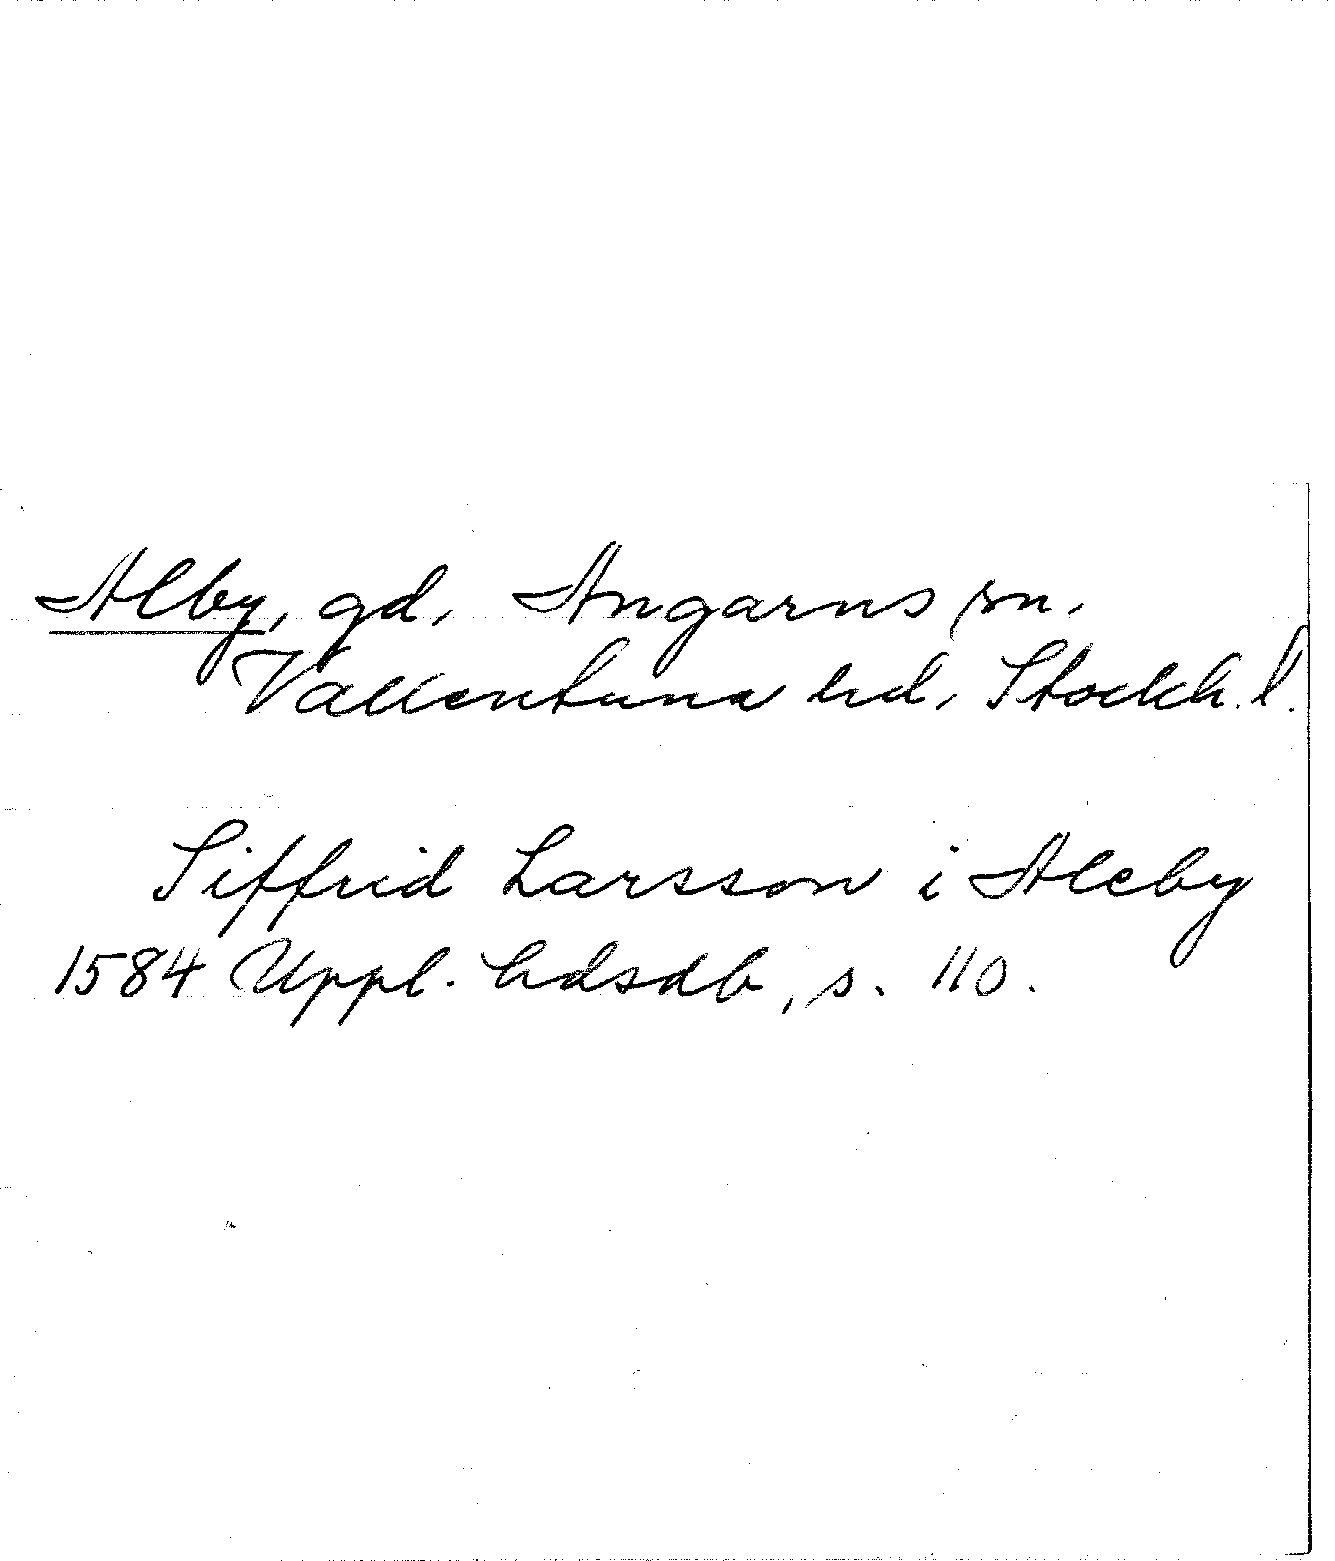 Alby, gd, Angarns sn.
Vallentuna hd, Stockh. l.
Siffrid Larsson i Aleby
1584 Uppl. hdsdb, s. 110.